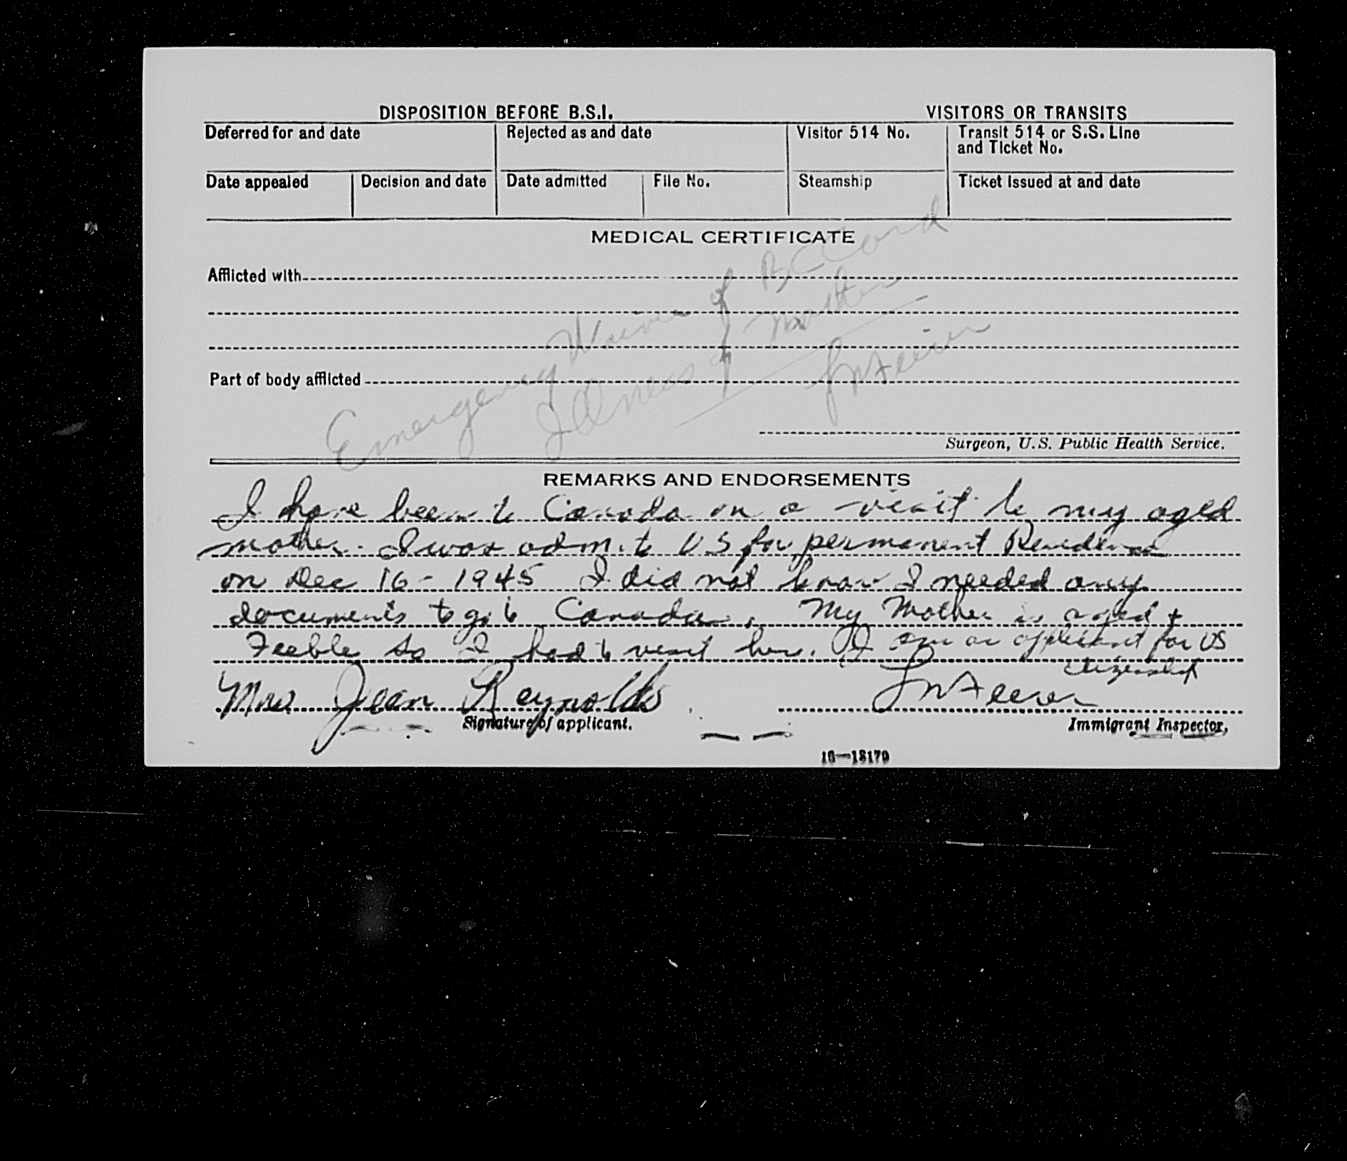 DISPOSITION BEFORE B.S.I. VISITORS OR TRANSITS
Deferred for and date Rejected as and date Visitor 514 No. Transit 514 or S.S. Line
and Ticket No.
Date appealed Decision and date Date admitted File No. Steamship Ticket issued at and date
MEDICAL CERTIFICATE
Afflicted with
Part of body afflicted
Emergency Waiver of
Illness of Mother
Surgeon, U.S. Public Health Service.
REMARKS AND ENDORSEMENTS
I have been to Canada on a visit to my aged
mother. I was admit to US for permanent Residence
on Dec 16 - 1945 I did not know I needed any
documents to go to Canada. My Mother is aged +
Feeble so I had to visit her. I am an applicant for US
citizenship
Mrs Jean Reynolds
Signature of applicant. Immigrant Inspector,
16—18179